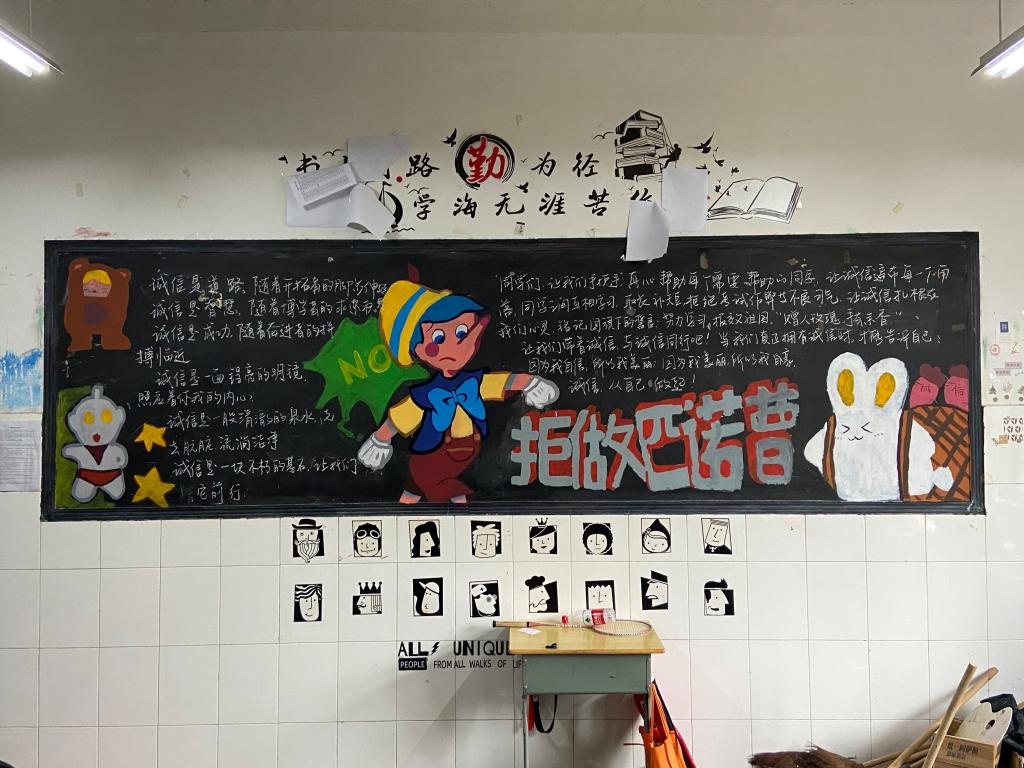 书 路 勤 为 径
学 海 无 涯 苦
诚信是道路,随着开拓者的脚步延伸
诚信是智慧,随着博学者的求索
诚信是成功,随着奋进者的拼
搏临近
诚信是一面明镜,
照应着你我的内心
诚信是一股清澈的泉水,洗
去肮脏 流淌洁净
诚信是一块不朽的基石,让我们
它前行.
NO
同学们,让我们手拉手 真心帮助每个需要帮助的同学,让诚信遍布每一个角
落,同学之间互相学习,取长补短,拒绝考试作弊等不良习气,让诚信扎根在
我们心灵,铭记国旗下的誓言:努力学习,报效祖国,“赠人玫瑰,手余香”.
让我们带着诚信,与诚信同行吧!当我们真正拥有诚信时,才能告诉自己:
因为我自信,所以我美丽;因为我美丽,所以我自豪.
诚信,从自己做起!
拒做匹诺曹
诚 信
ALL UNIQUE
PEOPLE FROM ALL WALKS OF